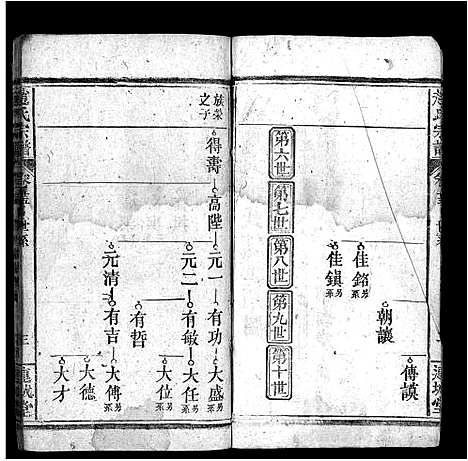 氏宗譜
世系
朝讓
傳謨
佳銘 另系
佳鎮 另系
第六世
第七世
第八世
第九世
第十世
族榮之子
得壽
高陞
元一
有功
大盛 另系
元二
有敏
大任 另系
大位 另系
有哲
元清
有吉
大傅 另系
大德
大才
氏宗譜
世系
三